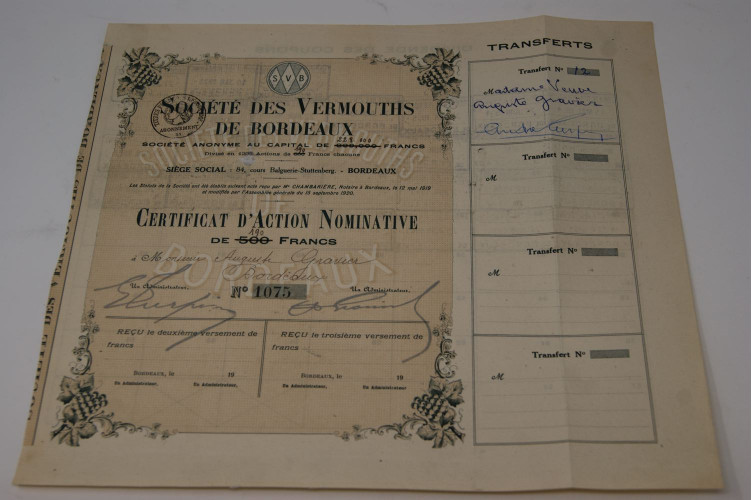 TRANSFERTS
SVB
SOCIÉTÉ DES VERMOUTHS
DE BORDEAUX
SOCIÉTÉ ANONYME AU CAPITAL DE FRANCS
Divisé en Actions de Francs chacune
SIÈGE SOCIAL - 84, cours Balguerie-Stuttenberg. - BORDEAUX
Les Statuts de la Société ont été établis suivant acte reçu par Me CHAMBARIÈRE, Notaire à Bordeaux, le 12 mai 1919
et modifiés par l'Assemblée générale du 13 septembre 1920.
CERTIFICAT D'ACTION NOMINATIVE
190
DE 500 FRANCS
à Monsieur Auguste Gravier
Bordeaux
Un Administrateur, No 1075 Un Administrateur,
REÇU le deuxième versement de
francs
BORDEAUX, le 19
Un Administrateur, Un Administrateur,
REÇU le troisième versement de
francs
BORDEAUX, le 19
Un Administrateur, Un Administrateur,
Transfert No 12
Madame Veuve
Auguste Gravier
Transfert No
M
Transfert No
M
Transfert No
M
SOCIÉTÉ DES VERMOUTHS DE BORDEAUX